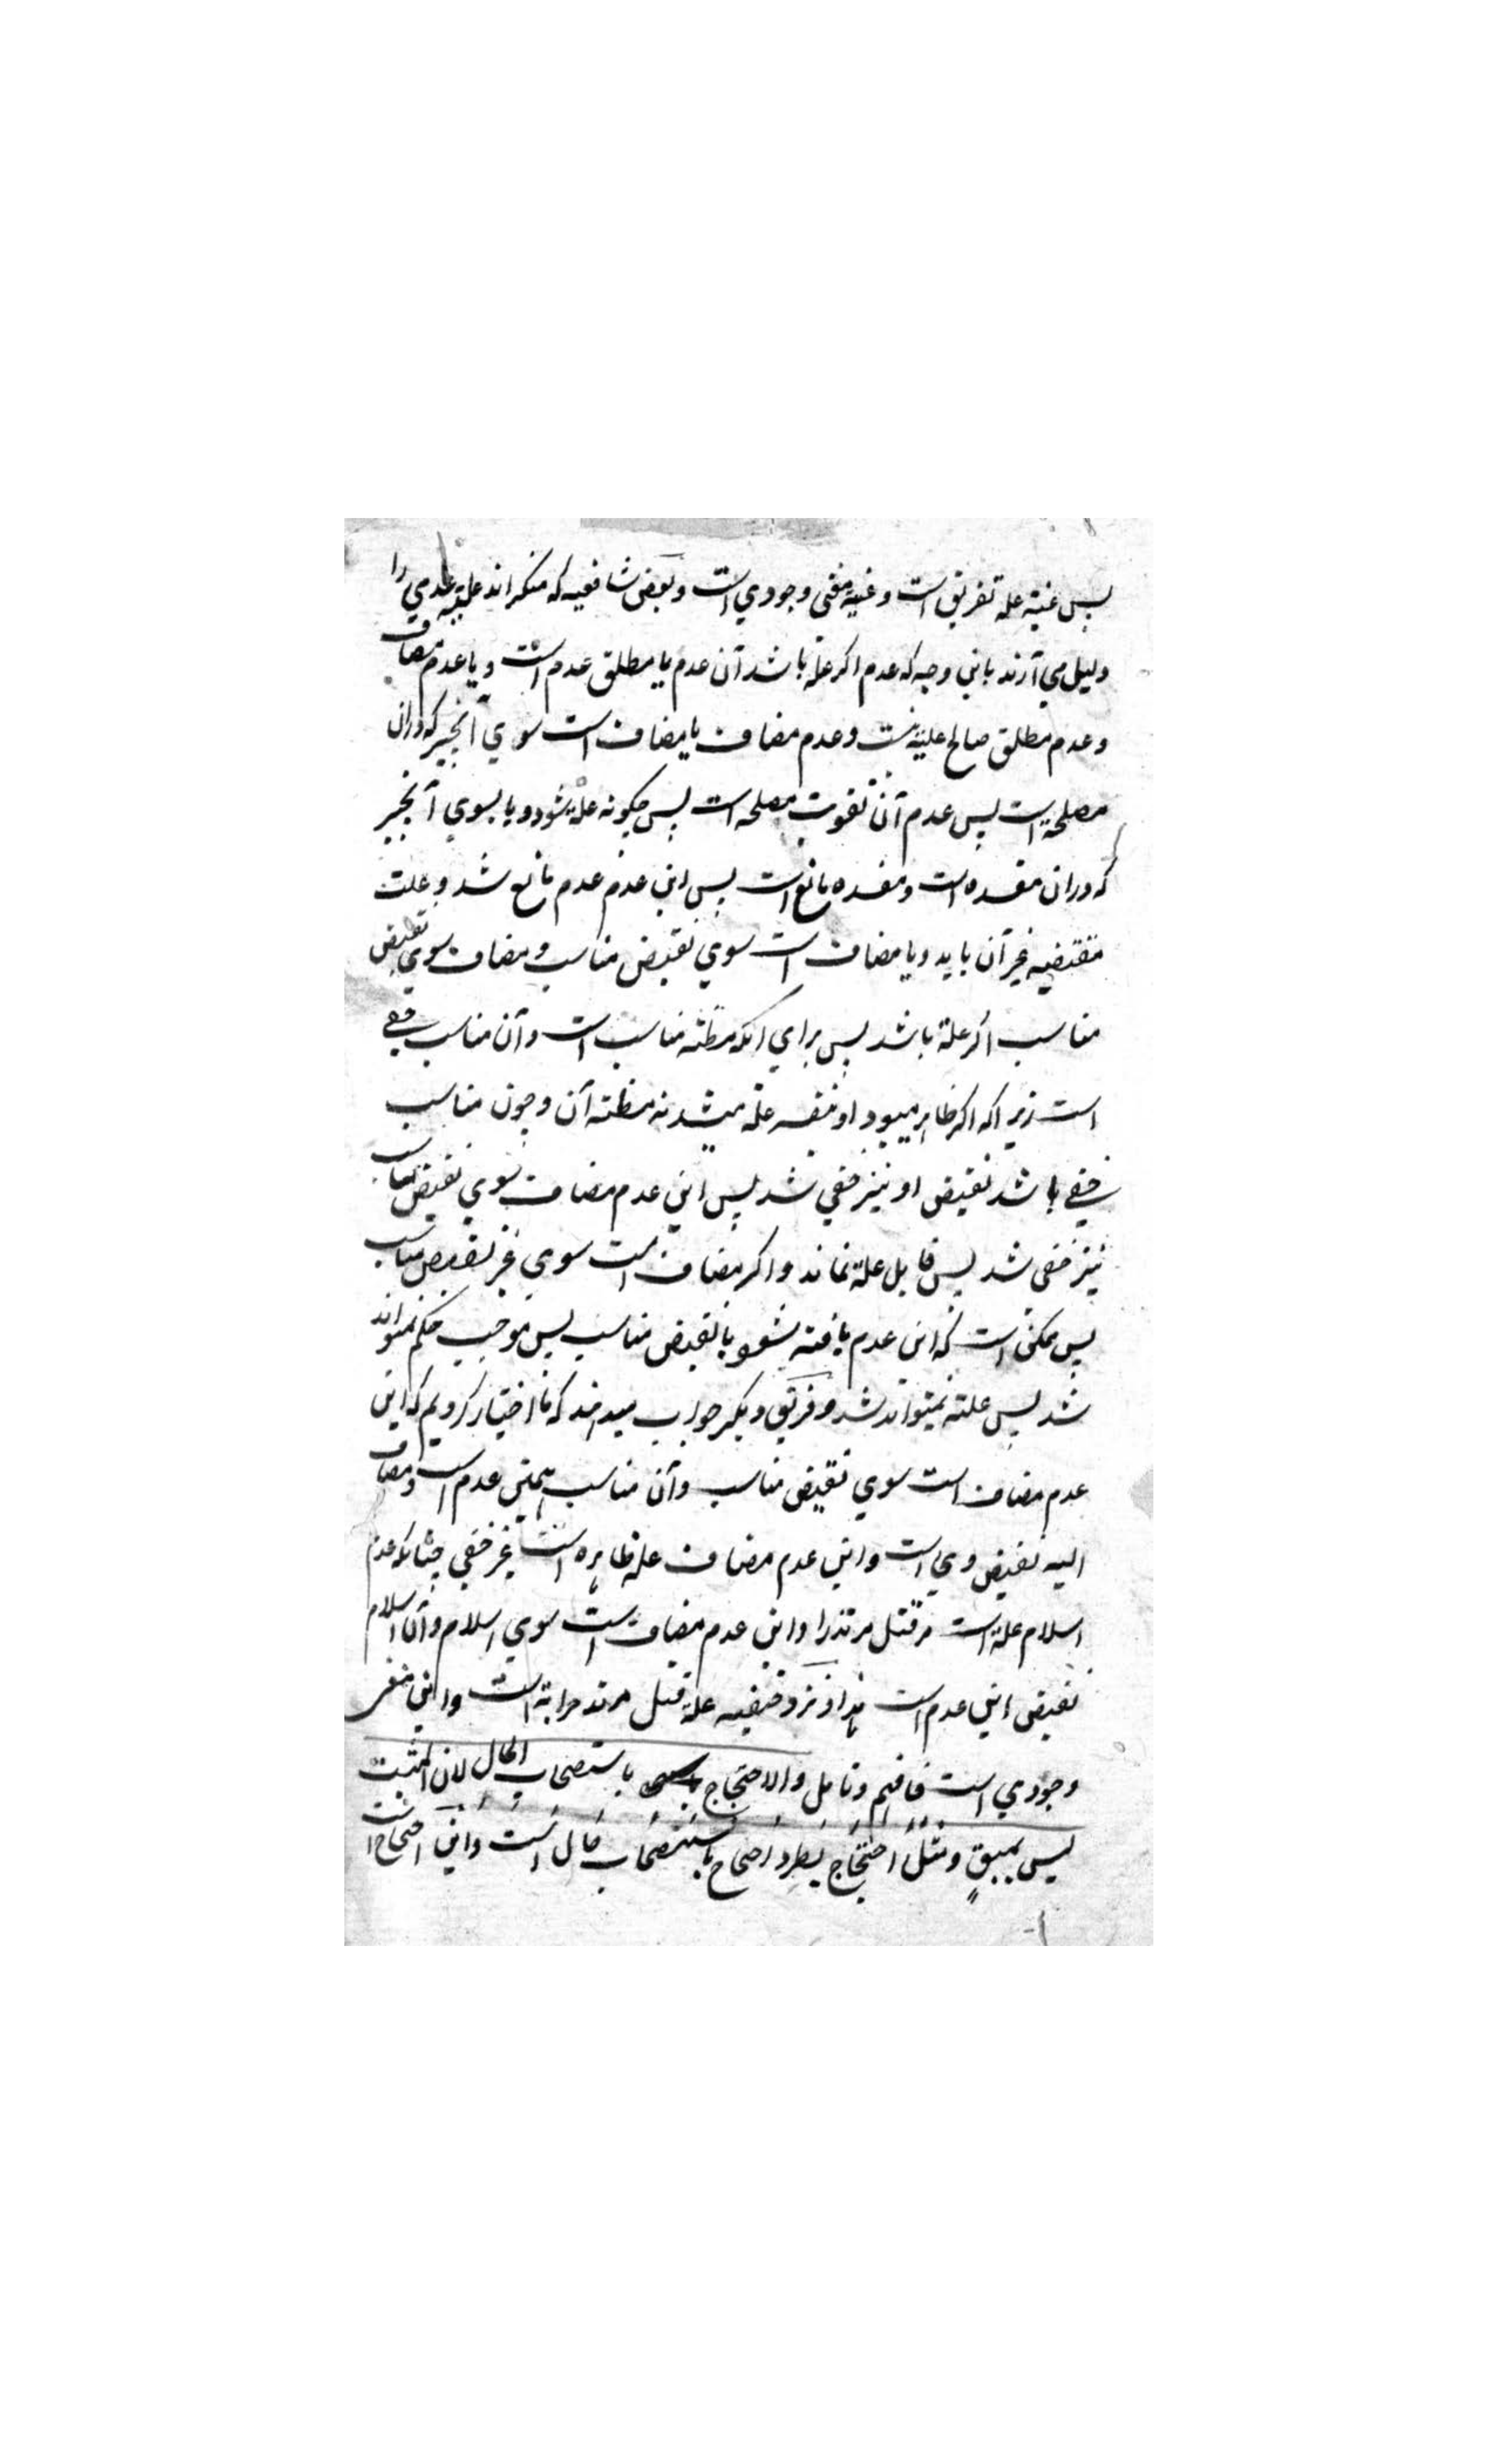 پس غیبة علة تفریق است و غیبة معنی وجودی است و بعض شافعیه که منکر اند علیة عدمی را
دلیل می آرند باین وجه که عدم اگر علة باشد آن عدم یا مطلق عدم است و یا عدم مضاف
و عدم مطلق صالح علیة نیست و عدم مضاف یا مضاف است سوی آنچیز که دران
مصلحة است پس عدم آن تفویت مصلحه است پس چگونه علة شود و یا بسوی آنچیز
که دران مفسده است و مفسده مانع است پس این عدم عدم مانع شد و علت
مقتضیه غیر آن باید و یا مضاف است سوی نقیض مناسب و مضاف سوی نقیض
مناسب اگر علة باشد پس برای آنکه مظنه مناسب است و آن مناسب خفی
است زیرا که اگر ظاهر میبود او بنفسه علة میشد نه مظنه آن و چون مناسب
خفی باشد نقیض او نیز خفی شد پس این عدم مضاف سوی نقیض مناسب
نیز خفی شد پس قابل علة نماند و اگر مضاف است سوی غیر نقیض مناسب
پس ممکن است که این عدم یافته شود با نقیض مناسب پس موجب حکم نمیتواند
شد پس علته نمیتواند شد و فریق دیگر جواب میدهند که ما اختیار کردیم که این
عدم مضاف است سوی نقیض مناسب و آن مناسب همین عدم است و مضاف
الیه نقیض وی است و این عدم مضاف علة ظاهره است غیر خفی چنانکه عدم
اسلام علة است مر قتل مرتد را و این عدم مضاف است سوی اسلام و آن اسلام
نقیض این عدم است هذا و نزد حنفیه علة قتل مرتد حرابة است و این معنی
وجودی است فافهم و تامل والاحتجاج باستصحاب الحال لان المثبت
لیس بمبقٍ و مثل احتجاج بطرد احتجاج باستصحاب حال است و این احتجاج است